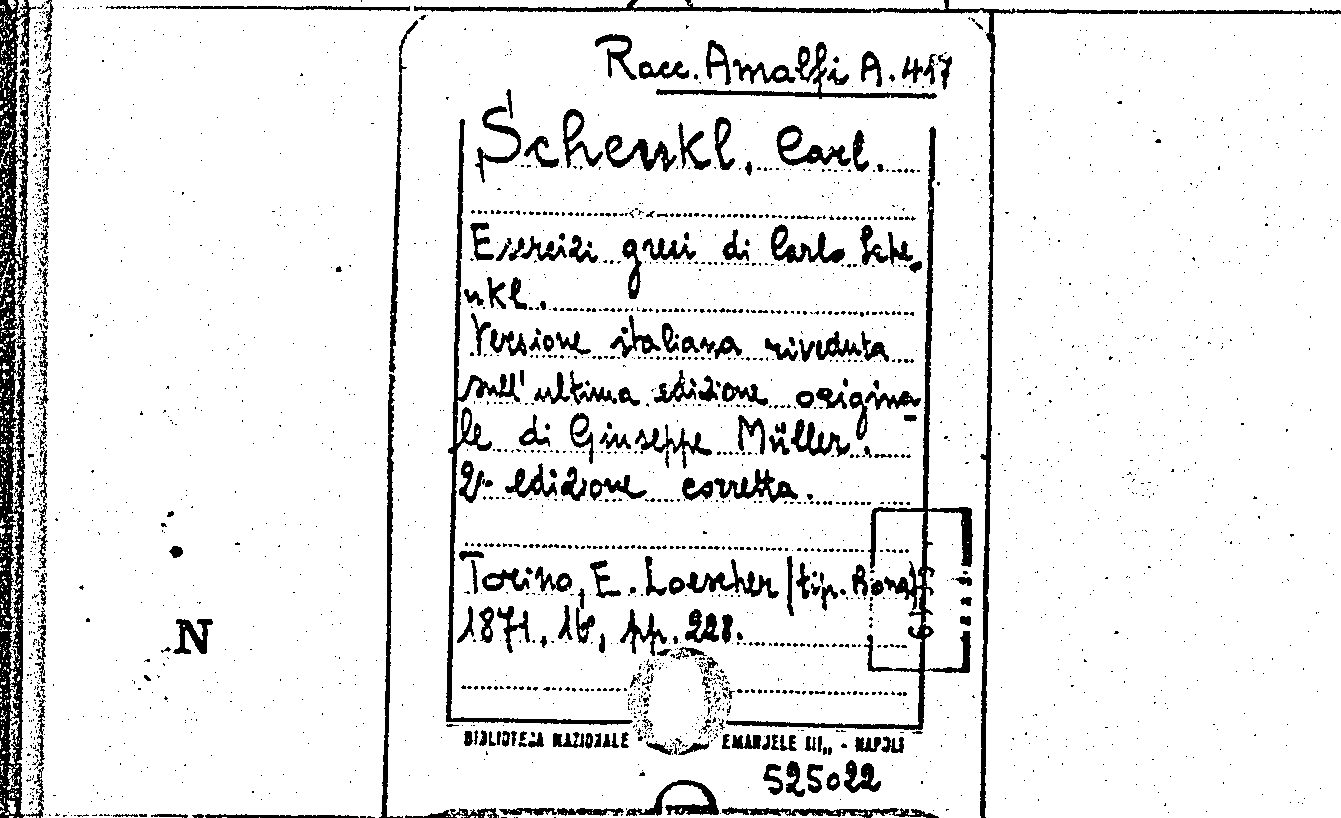 Racc. Amalfi A. 417
Schenkl, Carl.
Esercizi greci di Carlo Sche-
nkl.
Versione italiana riveduta
sull'ultima edizione origina-
le di Giuseppe Müller.
2ª edizione corretta.
Torino, E. Loescher (tip. Bona)
1871, 16°, pp. 228.
N
BIBLIOTECA NAZIONALE EMANUELE III„ - NAPOLI
525022